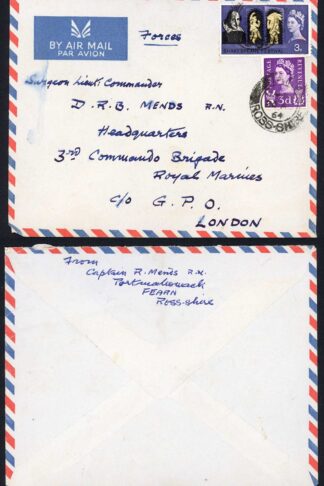 BY AIR MAIL
PAR AVION
Forces
SHAKESPEARE FESTIVAL
3D
POSTAGE
REVENUE
3d
64
ROSS-SHIRE
Surgeon Lieut Commander
D. R. B. MENDS R.N.
Headquarters
3rd Commando Brigade
Royal Marines
c/o G. P. O.
LONDON
From
Captain R. Mends R.N.
Portmahomack
FEARN
Ross-shire